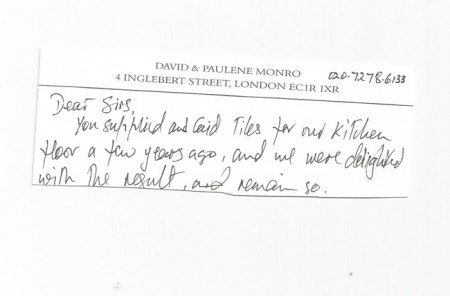 DAVID & PAULENE MONRO 020-7278-6133
4 INGLEBERT STREET, LONDON EC1R 1XR
Dear Sirs,
You supplied and laid Tiles for our kitchen
floor a few years ago, and we were delighted
with the result, and remain so.